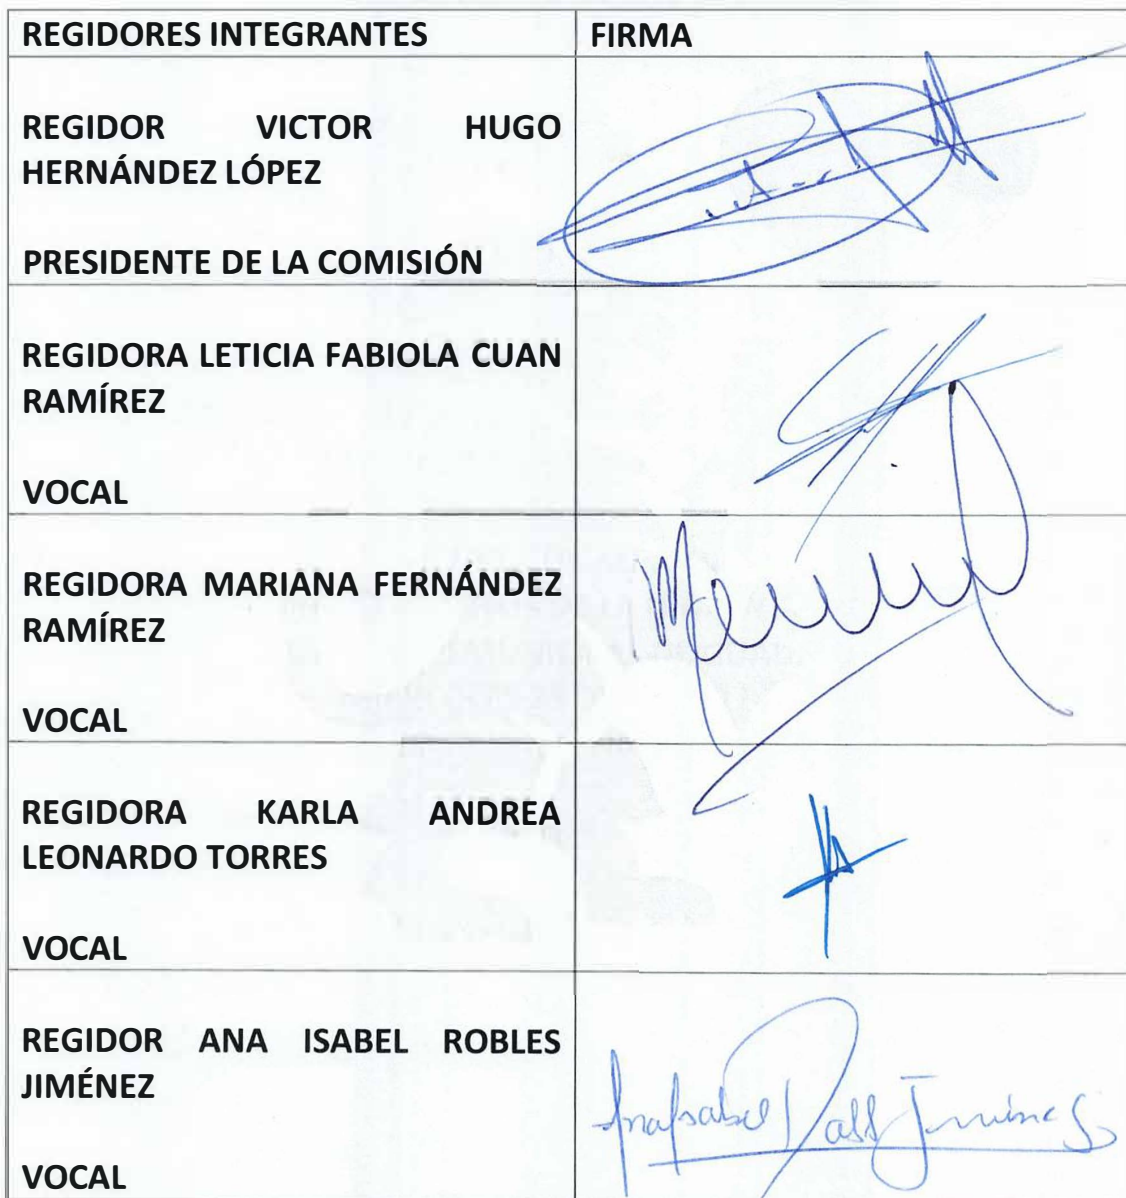 REGIDORES INTEGRANTES
FIRMA
REGIDOR VICTOR HUGO
HERNÁNDEZ LÓPEZ
PRESIDENTE DE LA COMISIÓN
REGIDORA LETICIA FABIOLA CUAN
RAMÍREZ
VOCAL
REGIDORA MARIANA FERNÁNDEZ
RAMÍREZ
VOCAL
REGIDORA KARLA ANDREA
LEONARDO TORRES
VOCAL
REGIDOR ANA ISABEL ROBLES
JIMÉNEZ
VOCAL